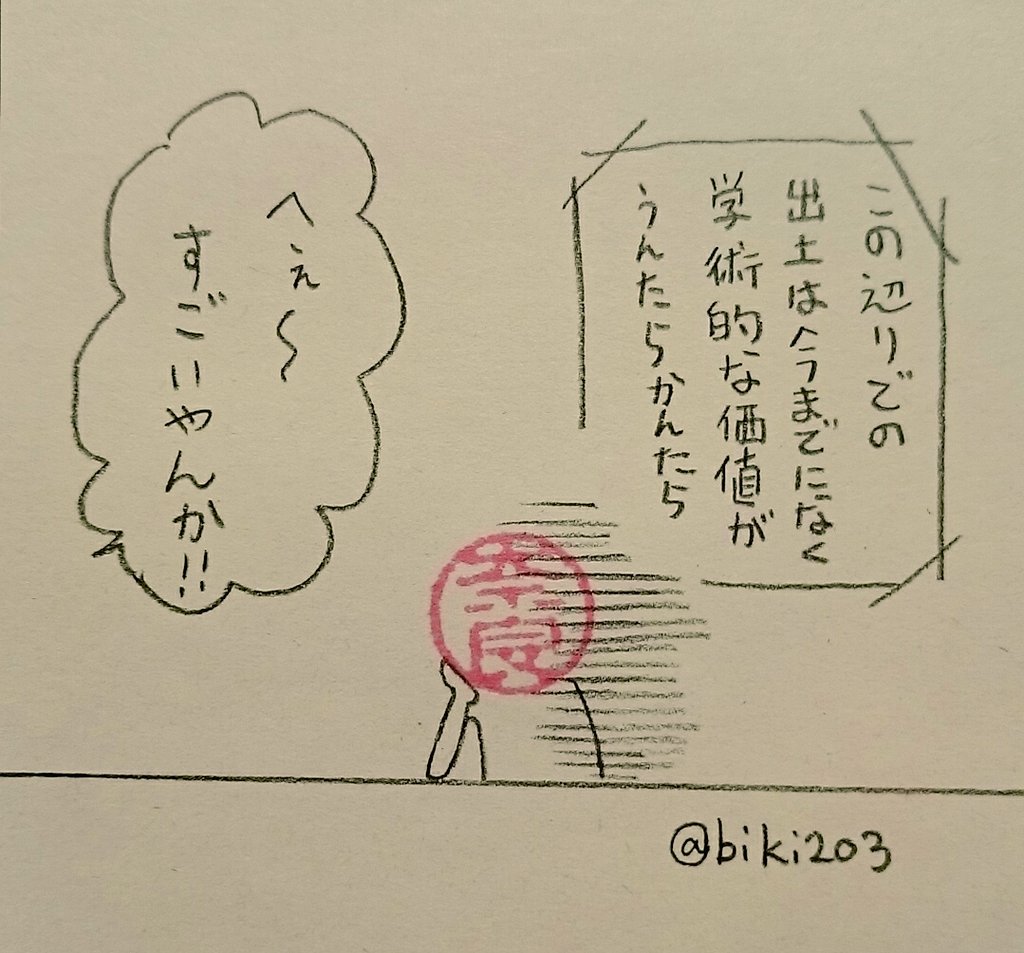 この辺りでの
出土は今までになく
学術的な価値が
うんたらかんたら
へぇ〜
すごいやんか!!
@biki203